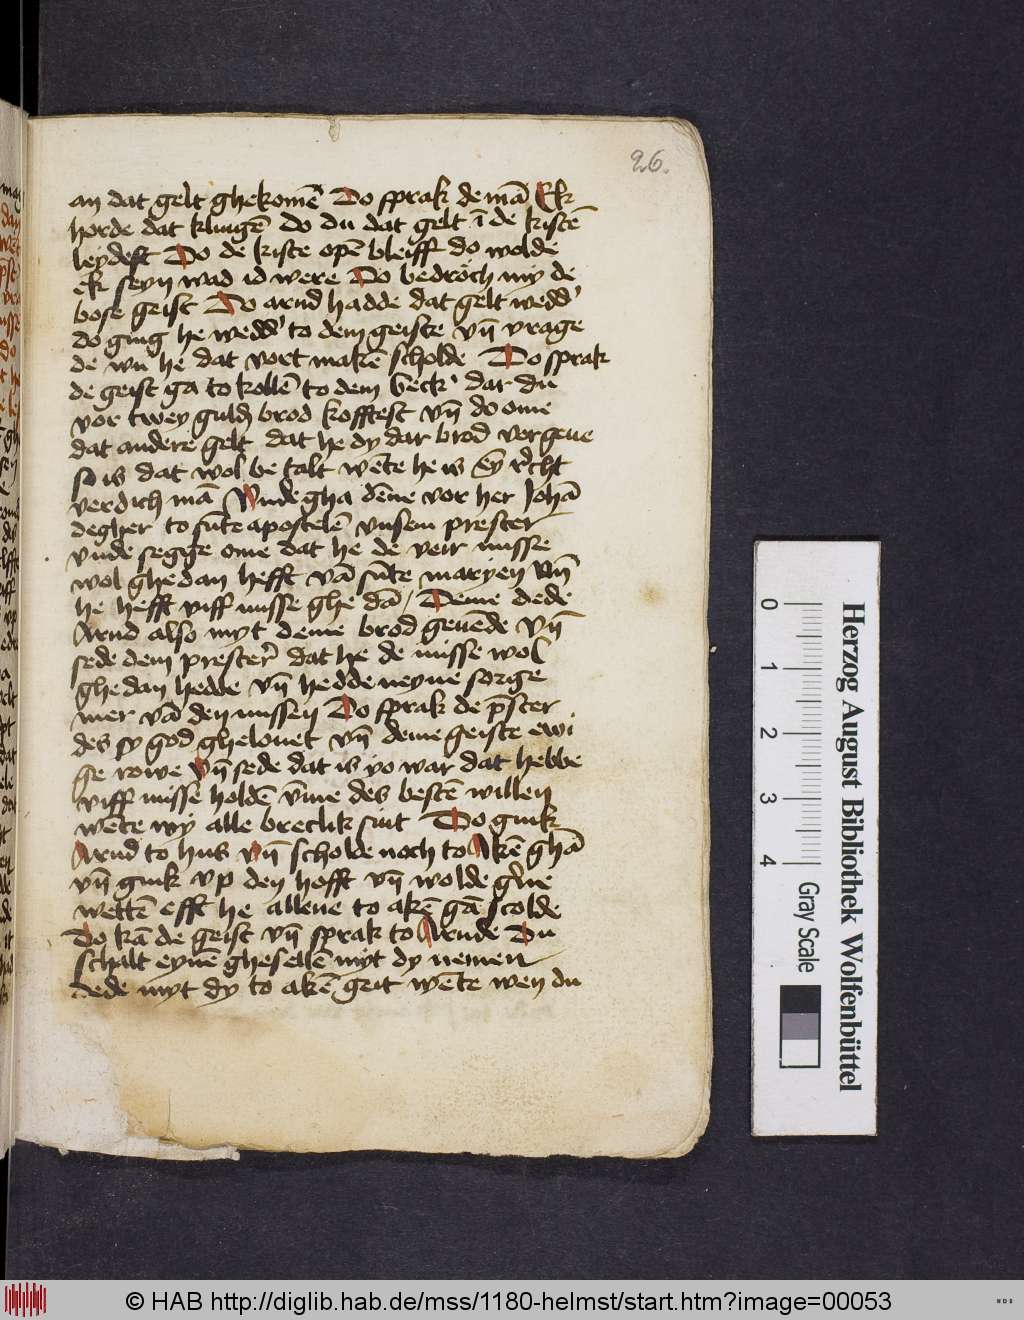 26.
an dat gelt ghekomē Do sprak de mā Ek
horde dat klingē do du dat gelt ī de kistē
leydest Do de kiste opē bleiff do wolde
ek seyn wad id were Do bedroch my de
bose geist Do arnd hadde dat gelt wedd'
do ging he wedd' to dem geiste vn̄ vrage
de wu he dat vort makē scholde Do sprak
de geist ga to kollē to dem beck' dar du
vor twey guld brod kofftest vn̄ do ome
dat andere gelt dat he dy dar brod vor geue
so is dat wol be talt wēte he is ey recht
verdich mā Vnde gha dēne vor her Johā
degher to sūte apostelē vnsem prester
vnde segge ome dat he de veir misse
wol ghedan hefft vā sūte maryen Vn̄
he hefft viff misse ghe dā / Deme dede
Arnd also myt deme brod geuēde vn̄
sede dem prester dat he de misse wol
ghe dan hedde vn̄ hedde neyne sorge
mer vā den missen Do sprak de p̄ster
des sy god ghelouet vn̄ deme geiste ewi
ge rowe Vn̄ sede dat is yo war dat hebbe
viff misse holdē v̄me des bestē willen
wēte wy alle breclik sint Do gink
Arnd to hus vn̄ scholde noch to Akē ghā
vn̄ gink vp den hofft vn̄ wolde g'ne
wettē efft he allene to akē gā scolde
Do kā de geist vn̄ sprak to Arnde Du
schalt eynē ghesellē myt dy nemen
dede myt dy to akē grit wēte wen du
0 1 2 3 4 Gray Scale
Herzog August Bibliothek Wolfenbüttel
© HAB http://diglib.hab.de/mss/1180-helmst/start.htm?image=00053